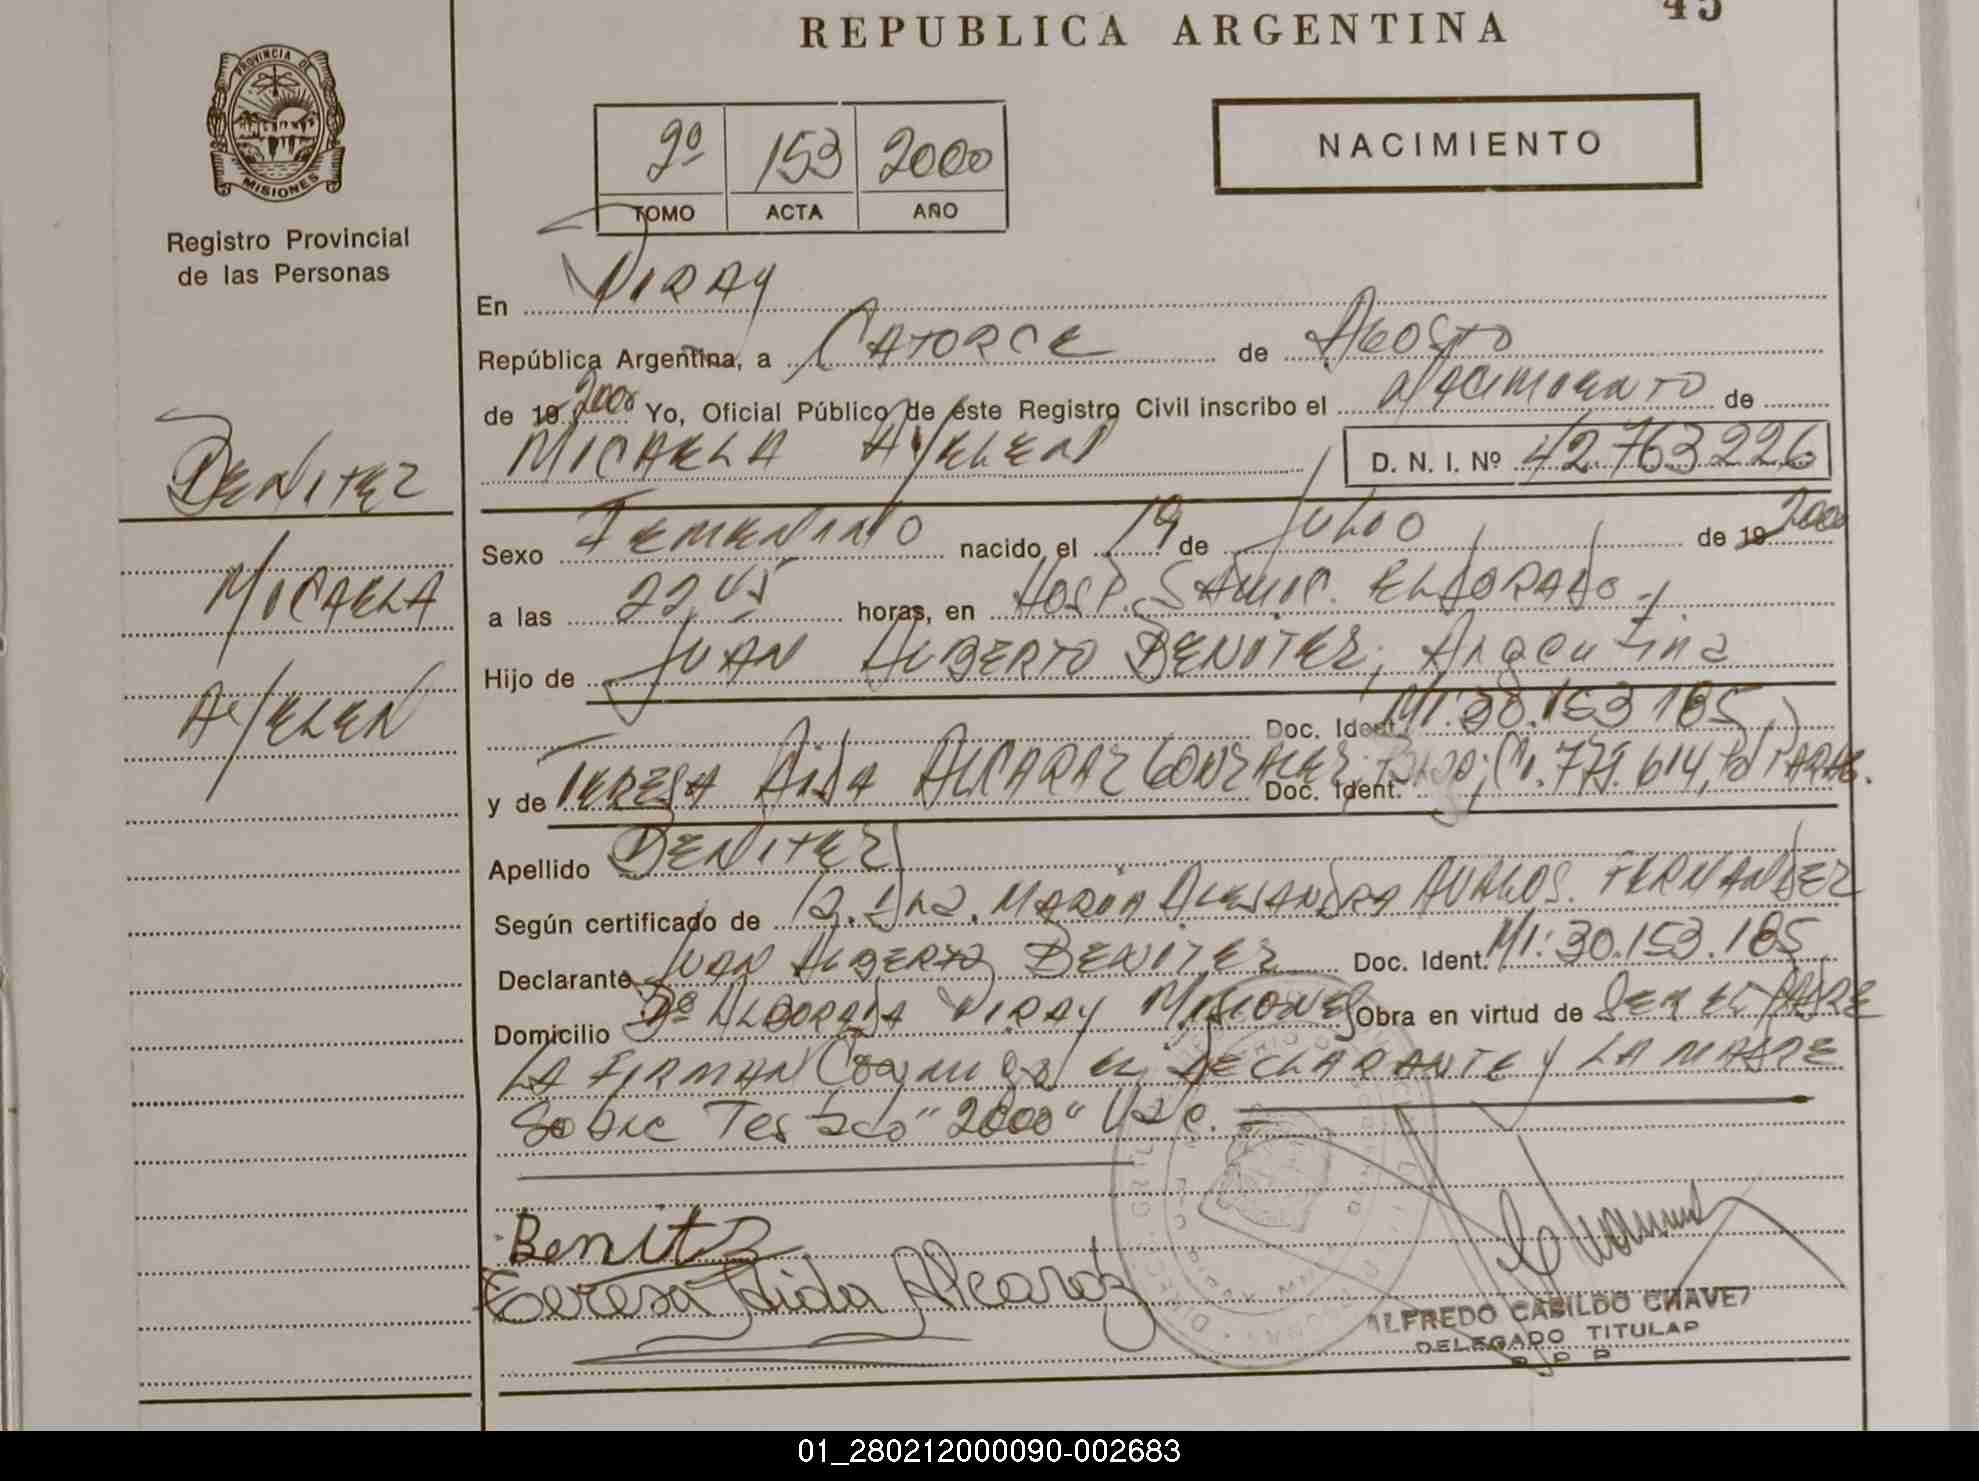 45
REPUBLICA ARGENTINA
PROVINCIA DE
MISIONES
Registro Provincial
de las Personas
2º 153 2000
TOMO ACTA AÑO
NACIMIENTO
En PIRAY
República Argentina, a CATORCE de AGOSTO
de 19 2000 Yo, Oficial Público de este Registro Civil inscribo el NACIMIENTO de
MICAELA AYELEN D. N. I. Nº 42.763.226
BENITEZ
MICAELA
AYELEN
Sexo FEMENINO nacido el 19 de JULIO de 19 2000
a las 22,45 horas, en HOSP. SAMIC. ELDORADO.-
Hijo de JUAN ALBERTO BENITEZ; Argentina
Doc. Ident. MI: 30.153.185
y de TERESA AIDA ALCARAZ GONZALEZ; Doc. Ident. CI. 779.614, PARAG.
Apellido BENITEZ
Según certificado de la Dra. MARIA ALEJANDRA AVALOS. FERNANDEZ
Declarante JUAN ALBERTO BENITEZ Doc. Ident. MI: 30.153.185
Domicilio Bº ALBORADA PIRAY MISIONES Obra en virtud de SER EL PADRE
LA FIRMAN Conjunta EL DECLARANTE Y LA MADRE
Sobre Testado "2000" Vale.=
Benitz
Teresa Aida Alcaraz
ALFREDO CABILDO CHAVEZ
DELEGADO TITULAR
R P P
01_280212000090-002683